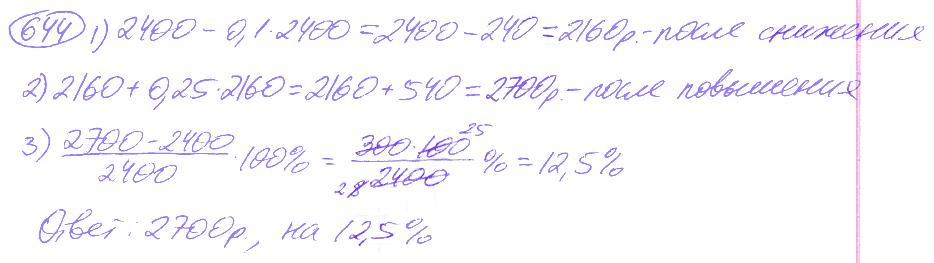 644 1) 2400 - 0,1·2400 = 2400 - 240 = 2160р. - после снижения
2) 2160 + 0,25·2160 = 2160 + 540 = 2700р. - после повышения
3) (2700 - 2400)/2400 · 100% = (300 · 100 25)/(2 8 2400) % = 12,5%
Ответ: 2700р., на 12,5%